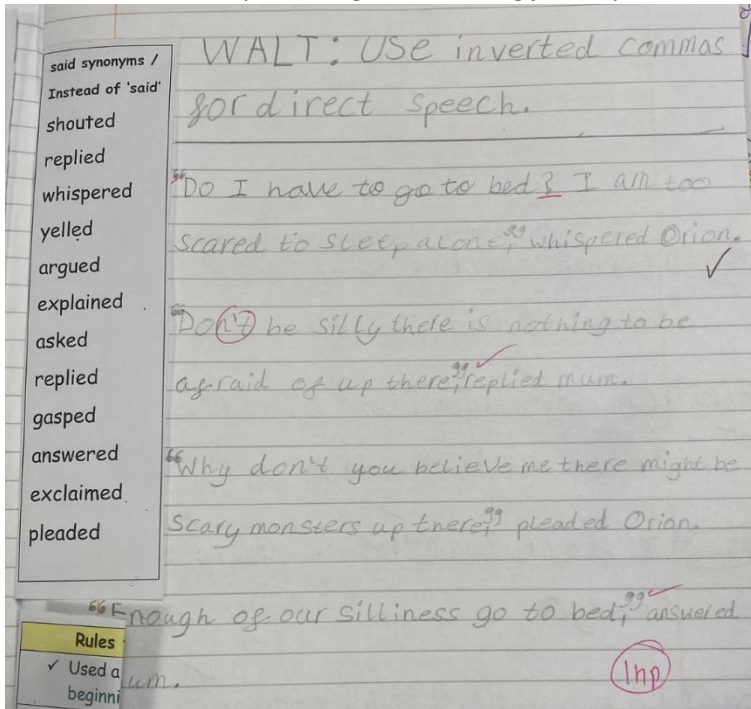 said synonyms /
Instead of 'said'
shouted
replied
whispered
yelled
argued
explained
asked
replied
gasped
answered
exclaimed
pleaded
WALT: Use inverted commas
for direct speech.
"Do I have to go to bed? I am too
scared to sleep alone," whispered Orion.
"Don't be silly there is nothing to be
afraid of up there," replied mum.
"Why don't you believe me there might be
scary monsters up there," pleaded Orion.
"Enough of our silliness go to bed," answered
um.
Inp
Rules
✓ Used a
beginni